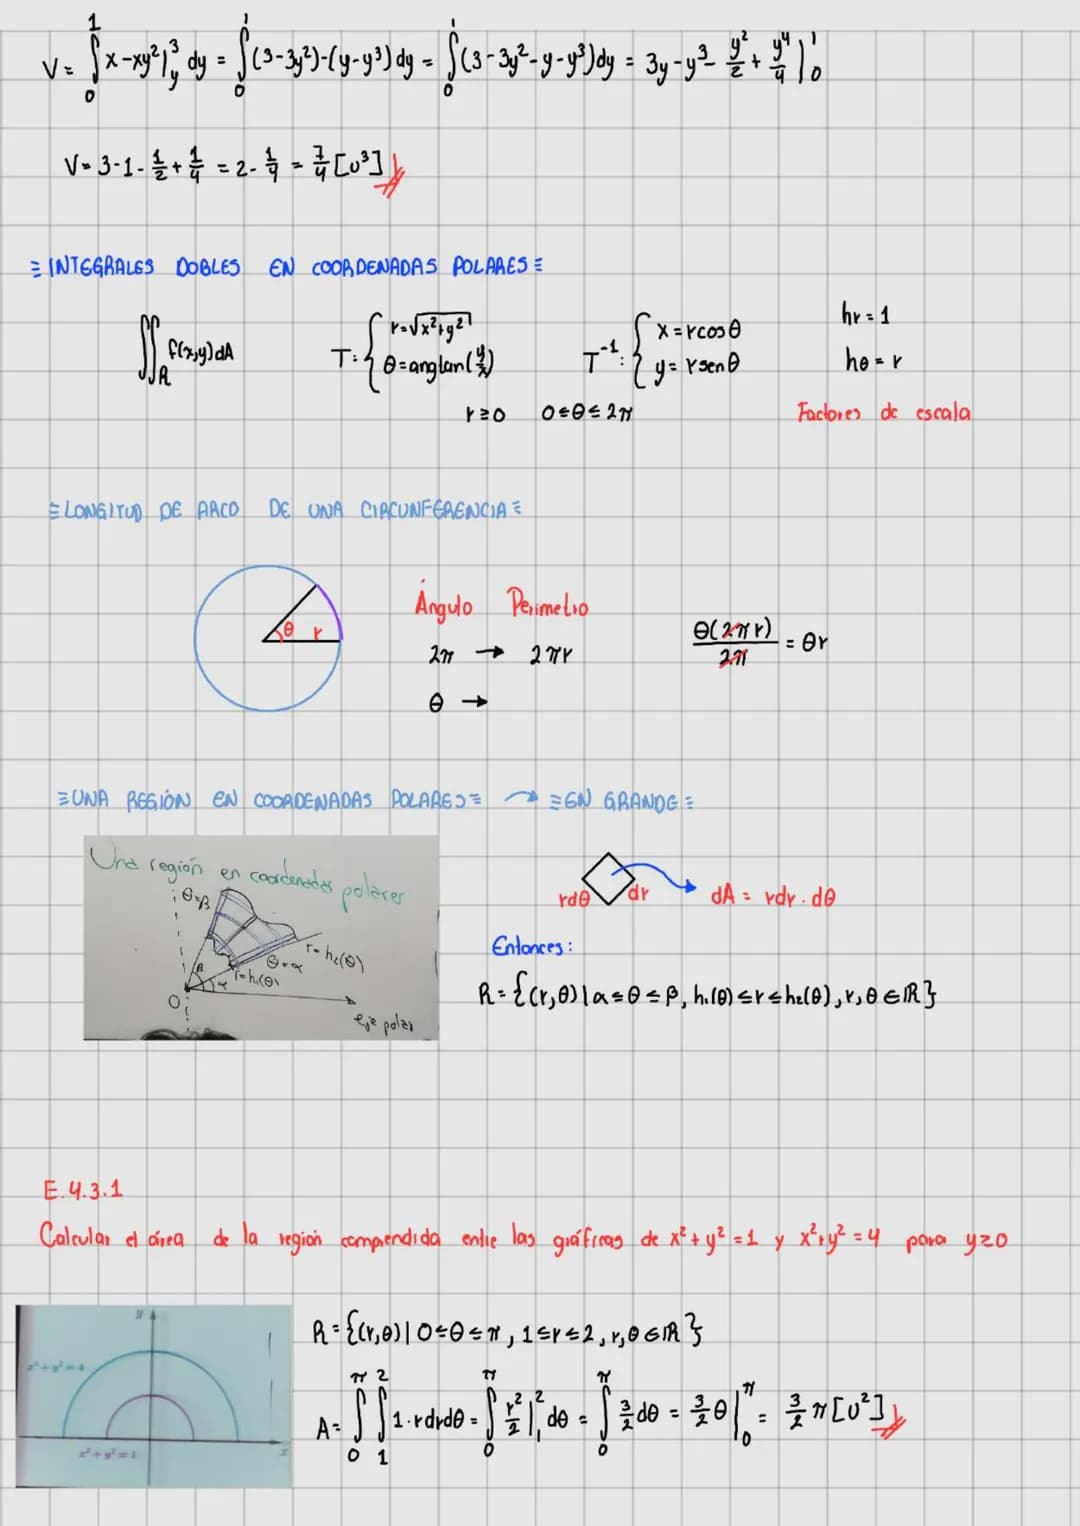 V = ∫₀¹ x - xy² |_y^3 dy = ∫₀¹ (3-3y²)-(y-y³) dy = ∫₀¹ (3-3y²-y-y³) dy = 3y - y³ - y²/2 + y⁴/4 |₀¹
V = 3-1-1/2+1/4 = 2-1/4 = 7/4 [u³]
≡ INTEGRALES DOBLES EN COORDENADAS POLARES ≡
∬_R f(x,y) dA
T: { r=√(x²+y²)
θ=angtan(y/x)
r≥0 0≤θ≤2π
T⁻¹: { x = rcosθ
y = rsenθ
hr = 1
hθ = r
Factores de escala
≡ LONGITUD DE ARCO DE UNA CIRCUNFERENCIA ≡
θ r
Ángulo Perimetro
2π → 2πr
θ →
θ(2πr)/2π = θr
≡ UNA REGIÓN EN COORDENADAS POLARES ≡ → ≡ EN GRANDE ≡
Una región en coordenadas polares
θ=β
r=h₂(θ)
θ=α
β
α
r=h₁(θ)
O
eje polar
rdθ dr dA = rdr·dθ
Entonces:
R = {(r,θ) | α≤θ≤β, h₁(θ)≤r≤h₂(θ), r,θ∈ℝ}
E.4.3.1
Calcular el área de la región comprendida entre las gráficas de x²+y²=1 y x²+y²=4 para y≥0
y
x²+y²=4
x²+y²=1
x
R = {(r,θ) | 0≤θ≤π, 1≤r≤2, r,θ∈ℝ}
A = ∫₀^π ∫₁² 1·rdrdθ = ∫₀^π r²/2 |₁² dθ = ∫₀^π 3/2 dθ = 3/2 θ |₀^π = 3/2 π [u²]